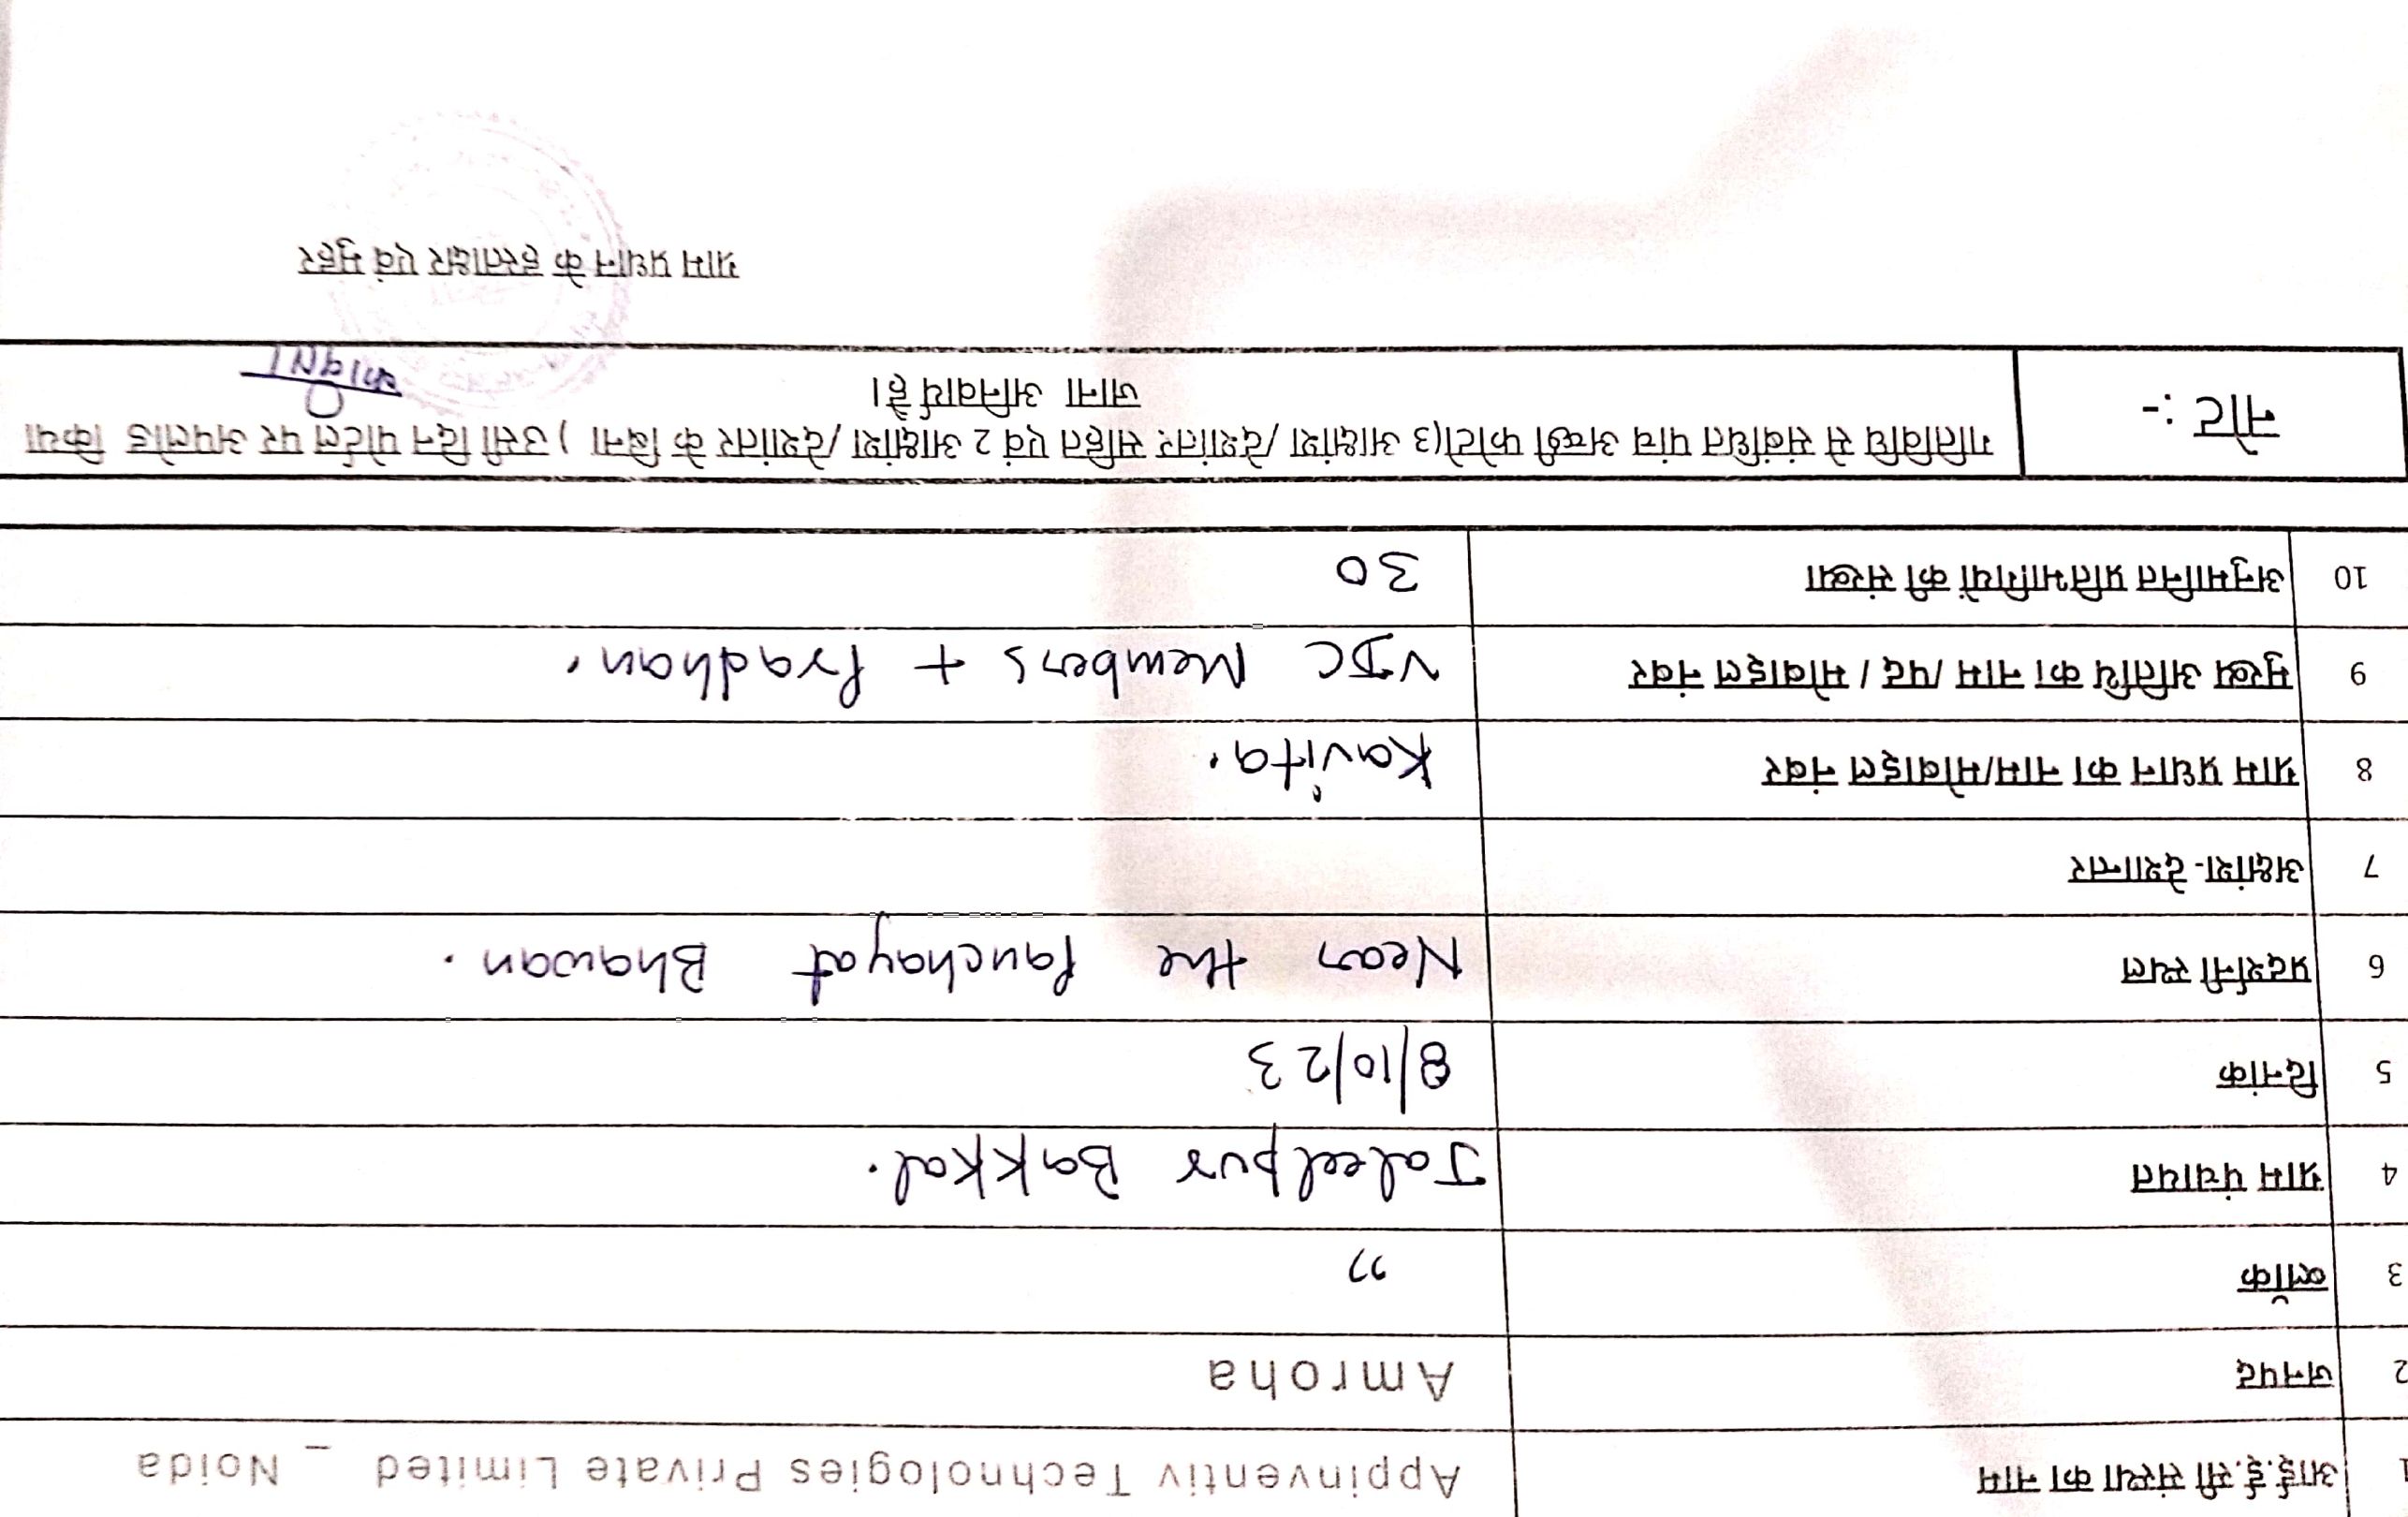 1 आई.ई.सी संस्था का नाम Appinventiv Technologies Private Limited _ Noida
2 जनपद Amroha
3 ब्लॉक ”
4 ग्राम पंचायत Jaleelpur Bakkal.
5 दिनांक 8/10/23
6 प्रदर्शनी स्थल Near the Panchayat Bhawan.
7 अक्षांश-देशान्तर
8 ग्राम प्रधान का नाम/मोबाइल नंबर Kavita.
9 मुख्य अतिथि का नाम /पद / मोबाइल नंबर VDC Members + Pradhan.
10 अनुमानित प्रतिभागियों की संख्या 30
नोट :- गतिविधि से संबंधित पांच अच्छी फोटो(3 आक्षांश /देशांतर सहित एवं 2 आक्षांश /देशांतर के बिना ) उसी दिन पोर्टल पर अपलोड किया
जाना अनिवार्य है।
ग्राम प्रधान के हस्ताक्षर एवं मुहर